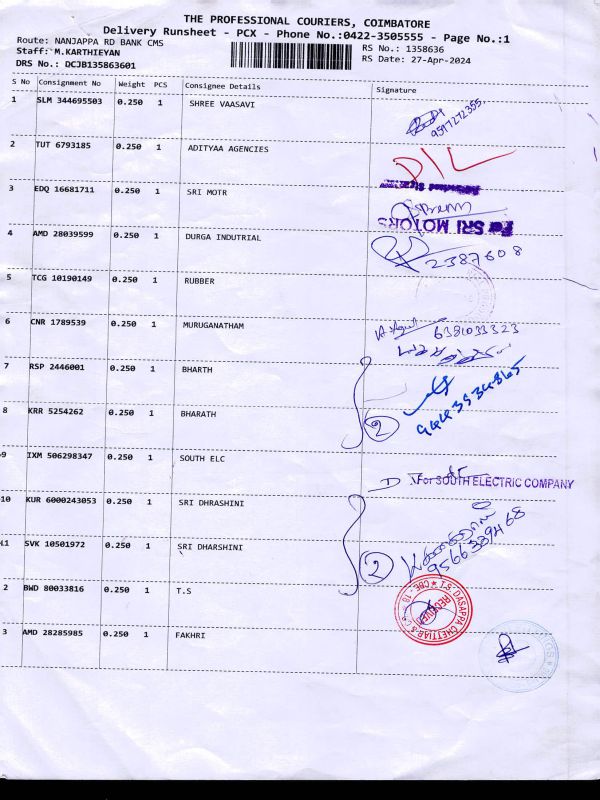 THE PROFESSIONAL COURIERS, COIMBATORE
Delivery Runsheet - PCX - Phone No.:0422-3505555 - Page No.:1
Route: NANJAPPA RD BANK CMS
RS No.: 1358636
Staff: M.KARTHIEYAN
RS Date: 27-Apr-2024
DRS No.: DCJB135863601
S No Consignment No Weight PCS Consignee Details Signature
1 SLM 344695503 0.250 1 SHREE VAASAVI
2 TUT 6793185 0.250 1 ADITYAA AGENCIES
3 EDQ 16681711 0.250 1 SRI MOTR
For SRI MOTORS
4 AMD 28039599 0.250 1 DURGA INDUTRIAL
2387608
5 TCG 10190149 0.250 1 RUBBER
6 CNR 1789539 0.250 1 MURUGANATHAM
6381033323
7 RSP 2446001 0.250 1 BHARTH
8 KRR 5254262 0.250 1 BHARATH
2
9 IXM 506298347 0.250 1 SOUTH ELC
For SOUTH ELECTRIC COMPANY
10 KUR 6000243053 0.250 1 SRI DHRASHINI
11 SVK 10501972 0.250 1 SRI DHARSHINI
2
9566389468
2 BWD 80033816 0.250 1 T.S
T.S. DASAPPA CHETTIAR
RECEIVED
CBE - 18
3 AMD 28285985 0.250 1 FAKHRI